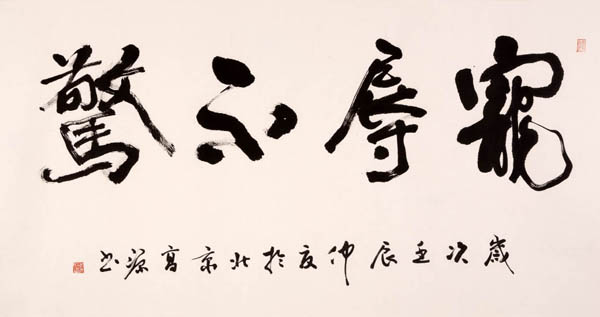 寵辱不驚
歲次壬辰仲夏於北京高源书